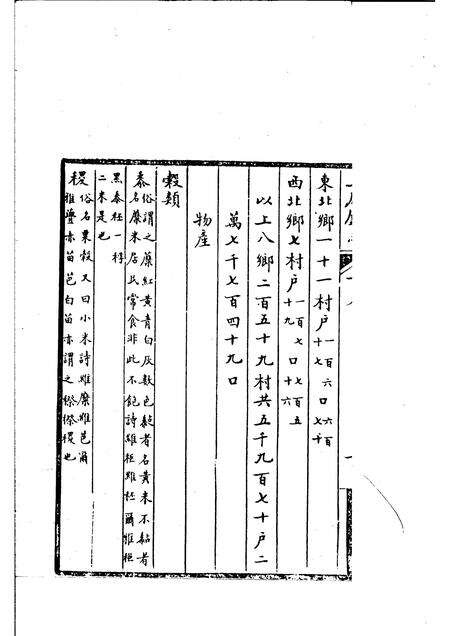 東北鄉一十一村户一百六口六百七十
十七
西北鄉七村户一百七口七百五
十九十六
以上八鄉二百五十九村共五千九百七十户二
萬七千七百四十九口
物產
穀類
黍俗謂之糜紅黃青白灰數色黏者名黃米不黏者
名糜米居民常食非此不飽詩維秬維秠爾雅秬
黑黍秠一稃
二米是也
稷俗名粟穀又曰小米詩維穈維芑爾
雅虋赤苗芑白苗亦謂之粢粢稷也